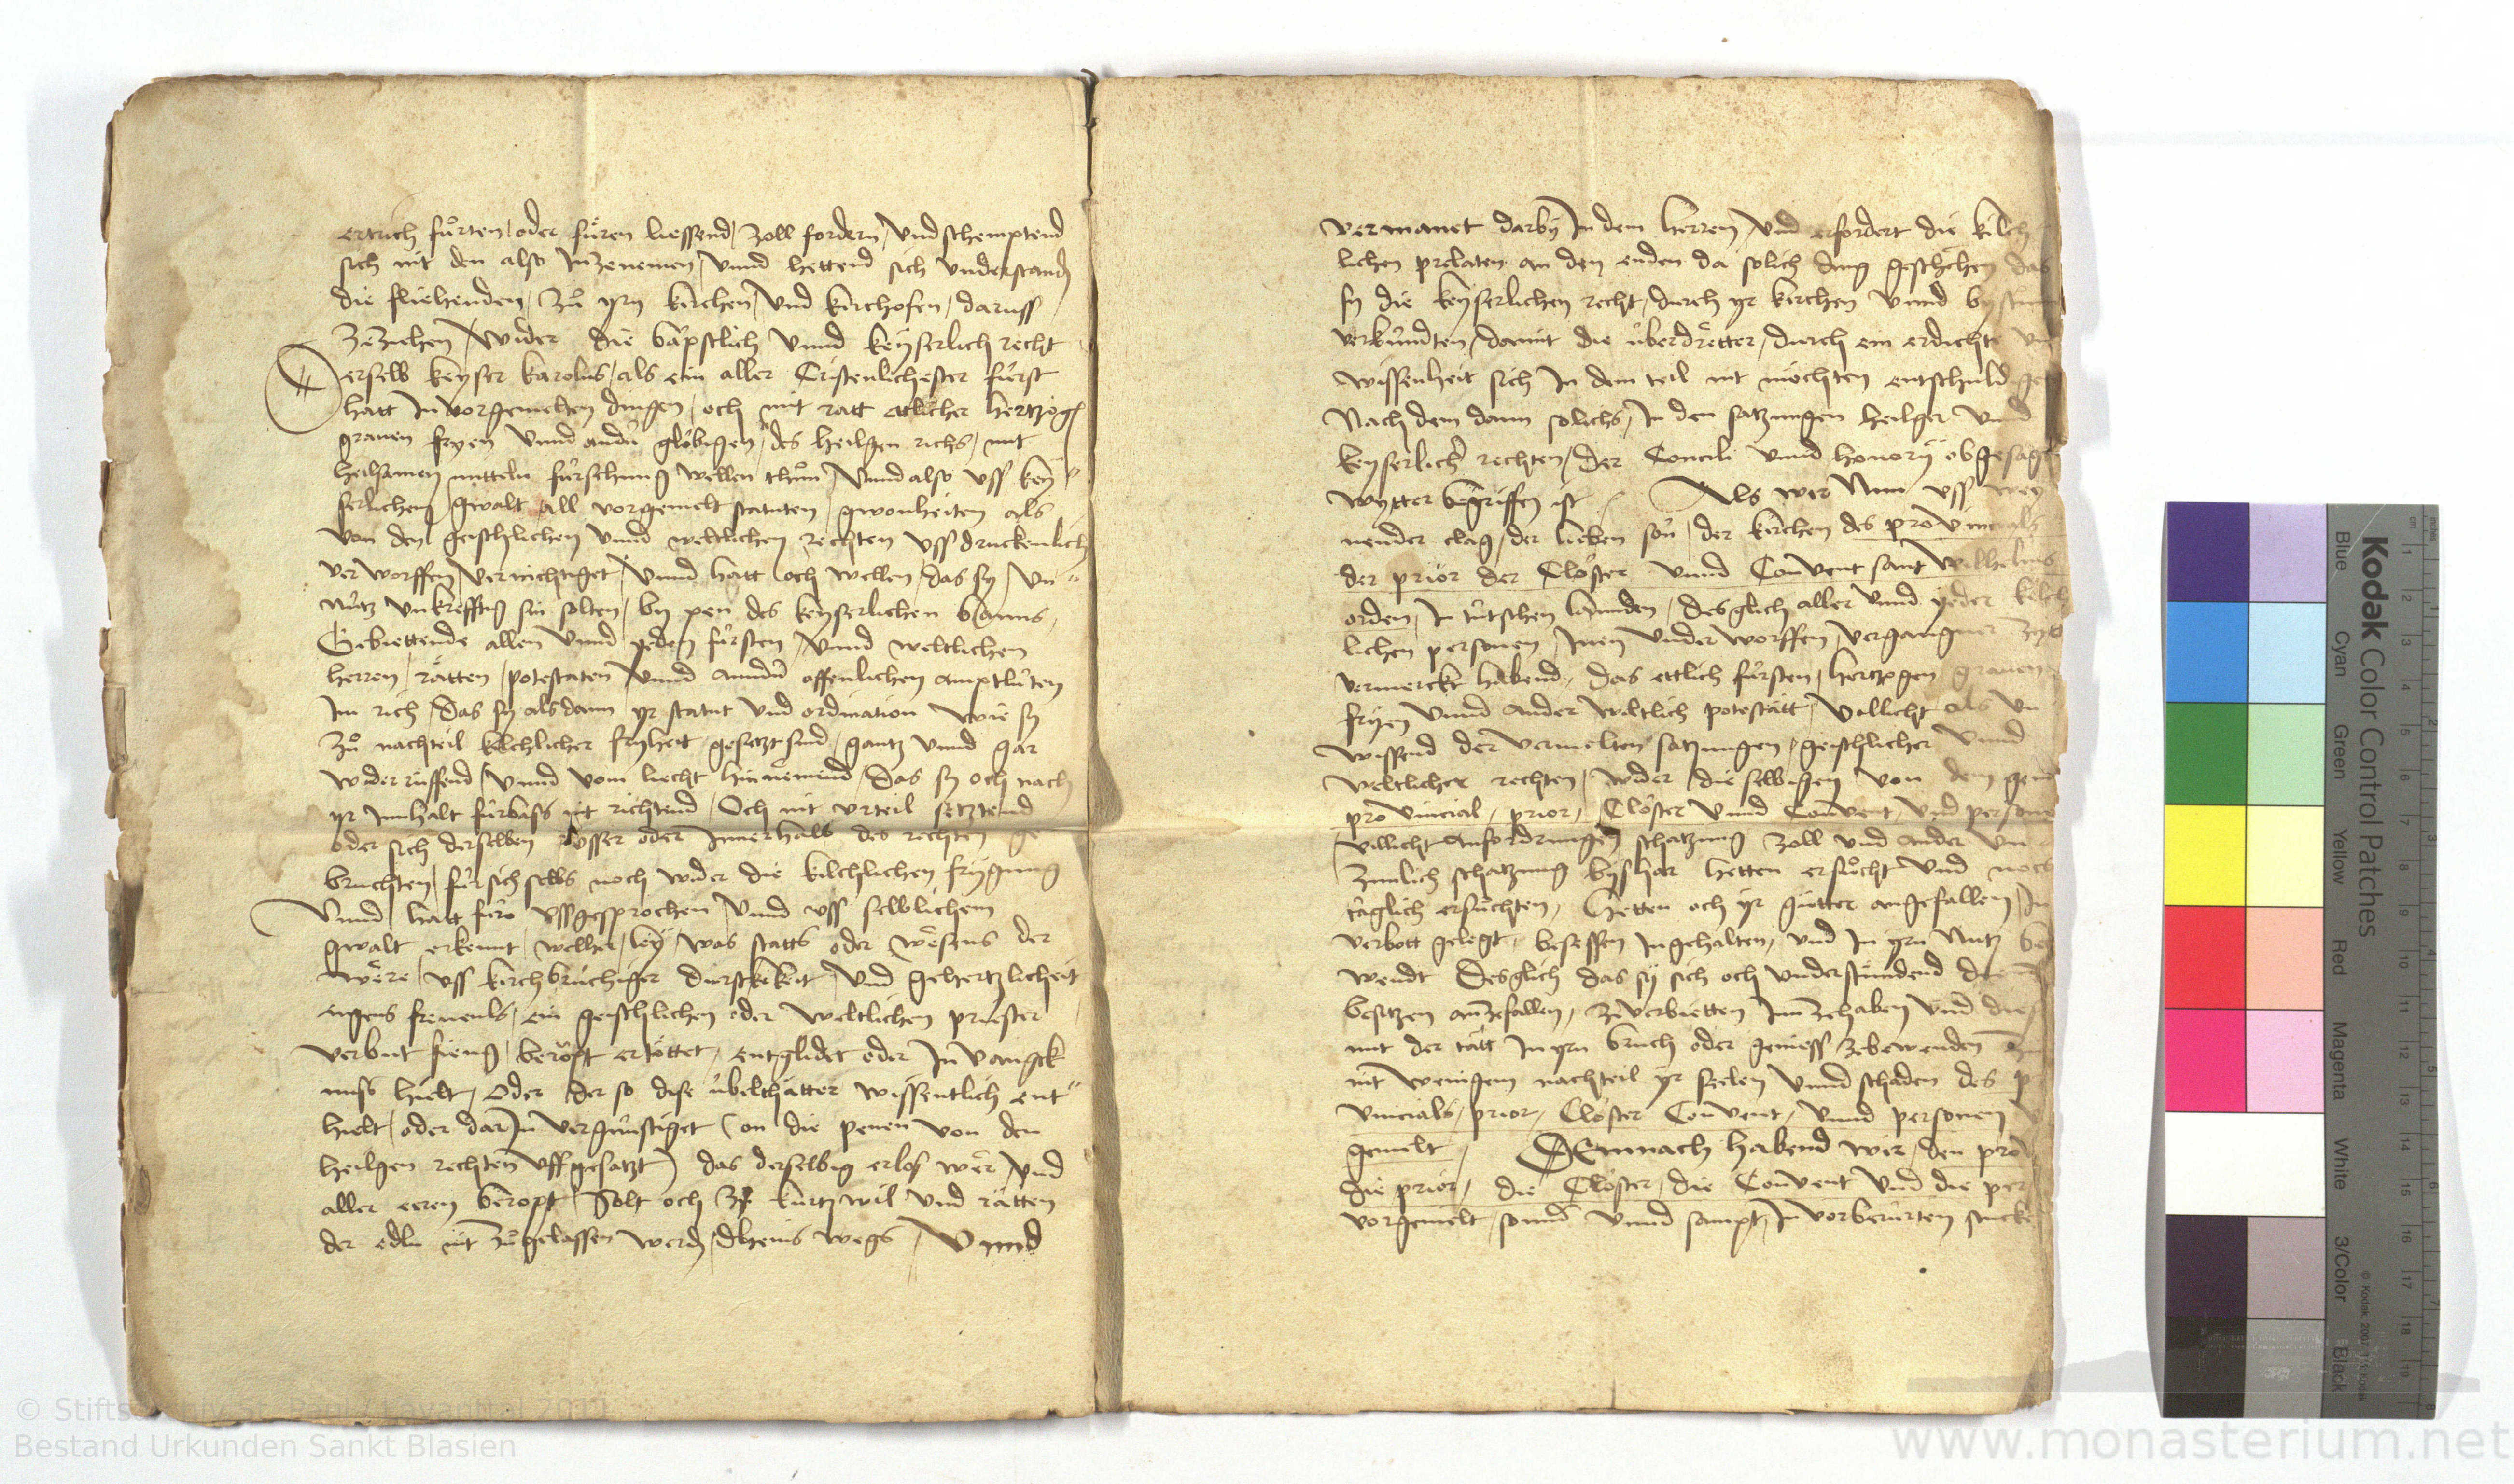 ertrich fuͦrten / oder fuͤren liessend / zoll fordern / vnd schemptend
sich nit den also Inzenemen / vnnd hettend sich vnderstanden
die fliehenden / Zuͦ yrn kirchen / vnd kirchofen / daruss
Zeziehen / wider die bäpstlich vnnd keyserlich recht
Derselb keyser karolus / als ein aller Cristenlichester fürst
hatt In vorgemelten dingen / och mit ratt ettlicher hertzogen
grauen fryen vnnd andrer glöbigen / des heilgen richs / mit
heilsamen mitteln fürsehung wellen thuͦn / Vnnd also vss key
serlichem gwalt all vorgemelt statuten / gwonheiten als
von den geistlichen vnnd weltlichen rechten vssdruckenlich
verworffen / vernichtiget / vnnd hatt och wellen / das sy / vn
nütz vnkrefftig sin solten / by pen des keyserlichen banns /
Gebiettende allen vnnd yeden fürsten / vnnd weltlichen
herren / rätten / potestaten / vnnd anndern offenlichen amptlüten
Im rich / das sy alsdann yr statut vnd ordination wie sy
Zuͦ nachteil kilchlicher fryheit gesetzt sind / gantz vnnd gar
widerruffend / vnnd vom liecht hinnemind / das sy och nach
yr Innhalt fürbass nit richtend / Och nit vrteil setztend
oder sich derselben vsser oder Innerhalb des rechten ge
bruchten / für sich selbs noch wider die kilchlichen frygung
Vnnd hatt füro vssgesprochen / vnnd vss selblichem
gwalt erkennt / welher ley / was statts oder wësens der
wëre / vss kirchbrüchiger dürstikeit / vnd gehertzlicheit
eygens freuenls / ein geistlichen oder weltlichen priester
verbut fieng / beröpt ertöttet / entglidet oder In vangck
nuss hielt / Oder der so dise übelthätter wissentlich ent
hielt / oder darIn vergünstiget (on die penen von den
heilgen rechten vffgesatzt) das derselbig erlos wër / vnd
aller eeren beropt / Solt och Zuͦ kurtzwil vnd rätten
der edln nit zuͦgelassen werden / dheins wegs / Vnnd
vermanet darby In dem herren / vnd erfordert die kilch
lichen prelaten an den enden da solich ding geschëhen das
sy die keyserlichen recht / durch yr kirchen vnnd
verkündten / damit die überdretter / durch ein erdichte vn
wissenheit sich In dem teil nit möchten entschuldigen
Nach dem dann solichs / In den satzungen heilger vnnd
keyserlicher rechten / der Concili vnnd honorÿ obgesagt
wytter begriffen ist / Als wir Nun vss wey
nender clag / der lieben sön / der kirchen des prouincials
der prior der Clöster vnnd Conuent sant Wilhelms
orden / In tütschen lannden / desglich aller vnnd yeder kilch
lichen personen / Inen vnderworffen / vergangner Zytt
vermerckt habend / das ettlich fürsten / hertzogen grauen
fryen vnnd ander weltlich potestätt / Villicht als vn
wissend der vermelten satzungen / geistlicher vnnd
weltlicher rechten / wider dieselbigen von dem gemelten
prouincial / prior / Clöster vnnd Conuent / vnd personen
villicht anfordrungen schatzung Zoll vnd ander vn
Zimlich schatzung byshar hetten ersuͦcht vnd noch
täglich ersuͦchten / Hetten och yr güetter angefallen / In
verbott gelegt / besessen Ingehalten / vnd In yrn Nutz be
wendt Desglich das sy sich och vnderstündend die
besitzen anzefallen / zeverbietten Innzehaben vnd die
mit der tätt In yrn bruch oder geniess zebewenden
nit wenigem nachteil yr seelen vnnd schaden des p
uincials / prior / Clöster Conuent / vnnd personen
gemelt / DEmnach habend wir / den pro
die prior / die Clöster / die Conuent vnd die per
vorgemelt / sonnd vnnd sampt / In vorberürten stucken
© Stiftsarchiv St. Paul / Lavanttal 2011
Bestand Urkunden Sankt Blasien
www.monasterium.net
Kodak Color Control Patches
Blue Cyan Green Yellow Red Magenta White 3/Color Black